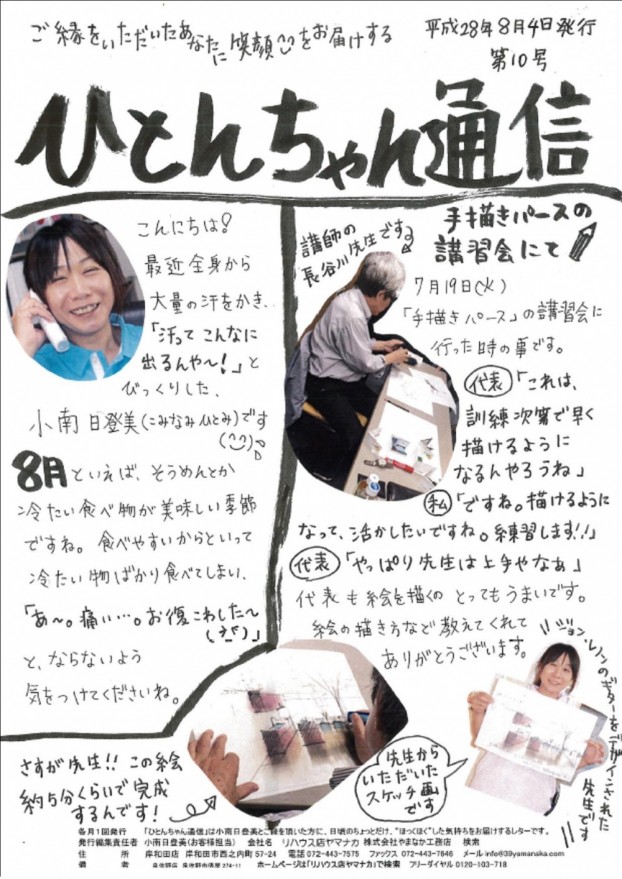 ご縁をいただいたあなたに笑顔をお届けする
平成28年8月4日発行
第10号
ひとんちゃん通信
こんにちは!
最近全身から
大量の汗をかき、
「汗って こんなに
出るんや〜!」と
びっくりした、
小南 日登美(こみなみ ひとみ)です
8月といえば、そうめんとか
冷たい食べ物が美味しい季節
ですね。食べやすいからといって
冷たい物ばかり食べてしまい、
「あ〜。痛い…。お腹こわした〜
」
と、ならないよう
気をつけてくださいね。
手描きパースの
講習会にて
講師の
長谷川先生です
7月19日(火)
「手描きパース」の講習会に
行った時の事です。
代表「これは、
訓練次第で早く
描けるように
なるんやろうね」
私「ですね。描けるように
なって、活かしたいですね。練習します!!」
代表「やっぱり先生は上手やなあ」
代表も絵を描くの とってもうまいです。
絵の描き方など教えてくれて
ありがとうございます。
さすが先生!! この絵
約5分くらいで完成
するんです!
先生から
いただいた
スケッチ画
です
ジョン・レノンのギターをデザインされた
先生です
毎月1回発行 「ひとんちゃん通信」は小南日登美とご縁を頂いた方に、日頃のちょっとだけ、“ほっくほく”した気持ちをお届けするレターです。
発行編集責任者 小南日登美(お客様担当) 会社名 リハウス店ヤマナカ 株式会社やまなか工務店 検索
住 所 岸和田店 岸和田市西之内町 57-24 電話 072-443-7575 ファックス 072-443-7646 メール info@39yamanaka.com
備 考 ホームページは「リハウス店ヤマナカ」で検索 フリーダイヤル 0120-103-718